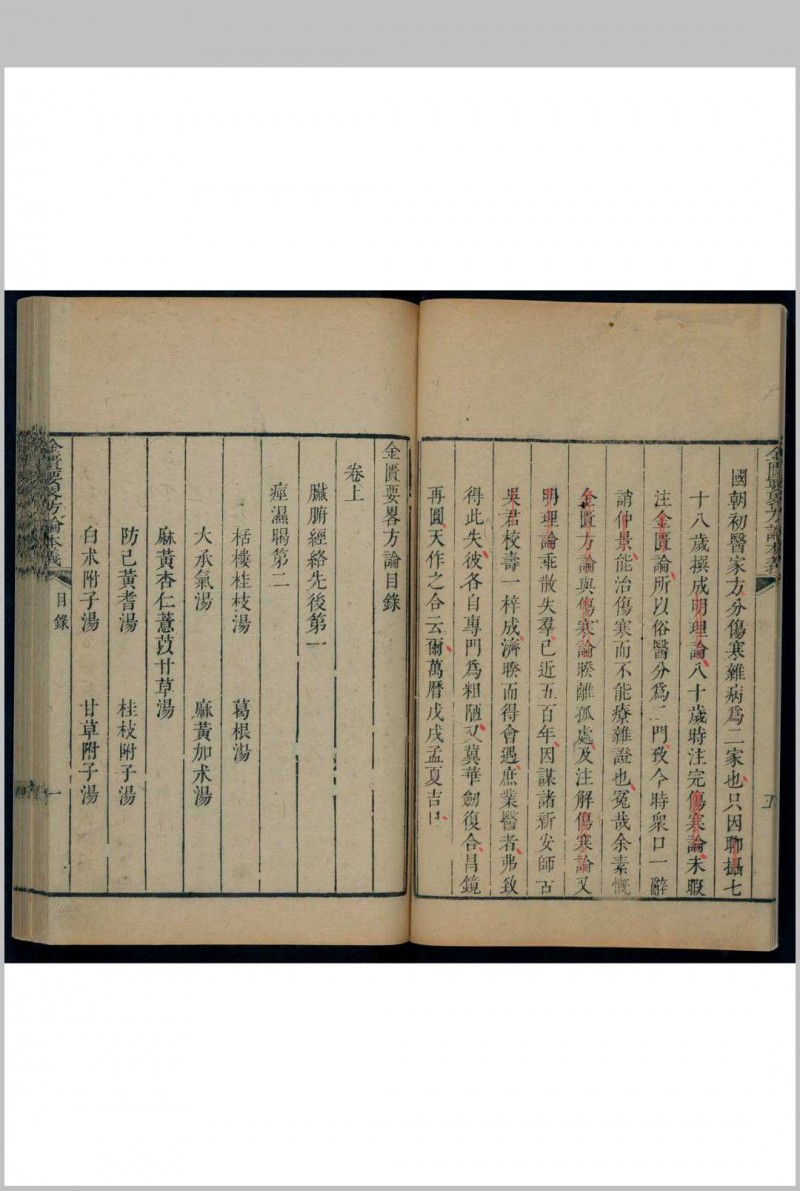 金匱要畧方論本義
五
國朝初醫家方分傷寒雜病爲二家也只因聊攝七
十八歲撰成明理論八十歲時注完傷寒論未暇
注金匱論所以俗醫分爲二門致今時衆口一辭
誚仲景能治傷寒而不能療雜證也寃哉余素慨
金匱方論與傷寒論睽離孤處及注解傷寒論又
明理論乖散失羣已近五百年因謀諸新安師古
吳君校壽一梓成濟睽而得會遇庶業醫者弗致
得此失彼各自專門爲粗陋又冀華劒復合昌鏡
再圓天作之合云爾萬曆戊戌孟夏吉日
金匱要畧方論目錄
卷上
臟腑經絡先後第一
痙濕暍第二
栝樓桂枝湯 葛根湯
大承氣湯 麻黃加术湯
麻黃杏仁薏苡甘草湯
防己黃耆湯 桂枝附子湯
白术附子湯 甘草附子湯
金匱要畧方論本義 目錄 一